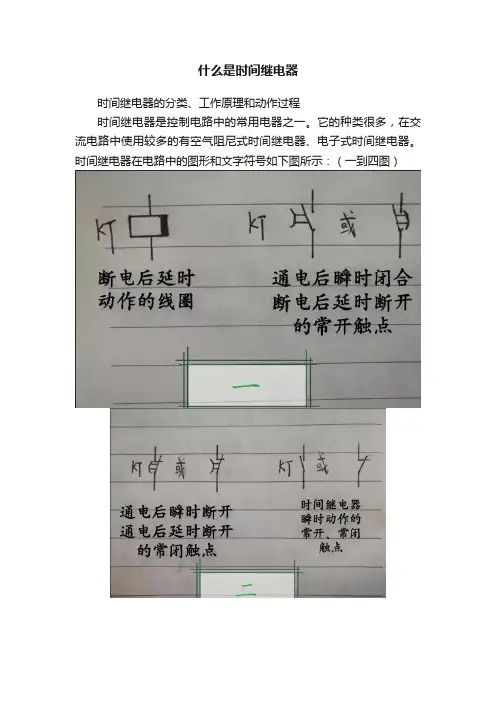 什么是时间继电器
时间继电器的分类、工作原理和动作过程
时间继电器是控制电路中的常用电器之一。它的种类很多，在交
流电路中使用较多的有空气阻尼式时间继电器、电子式时间继电器。
时间继电器在电路中的图形和文字符号如下图所示：（一到四图）
KT
KT 或
断电后延时
动作的线圈
通电后瞬时闭合
断电后延时断开
的常开触点
一
KT 或
KT 或
通电后瞬时断开
通电后延时断开
的常闭触点
时间继电器
瞬时动作的
常开、常闭
触点
二